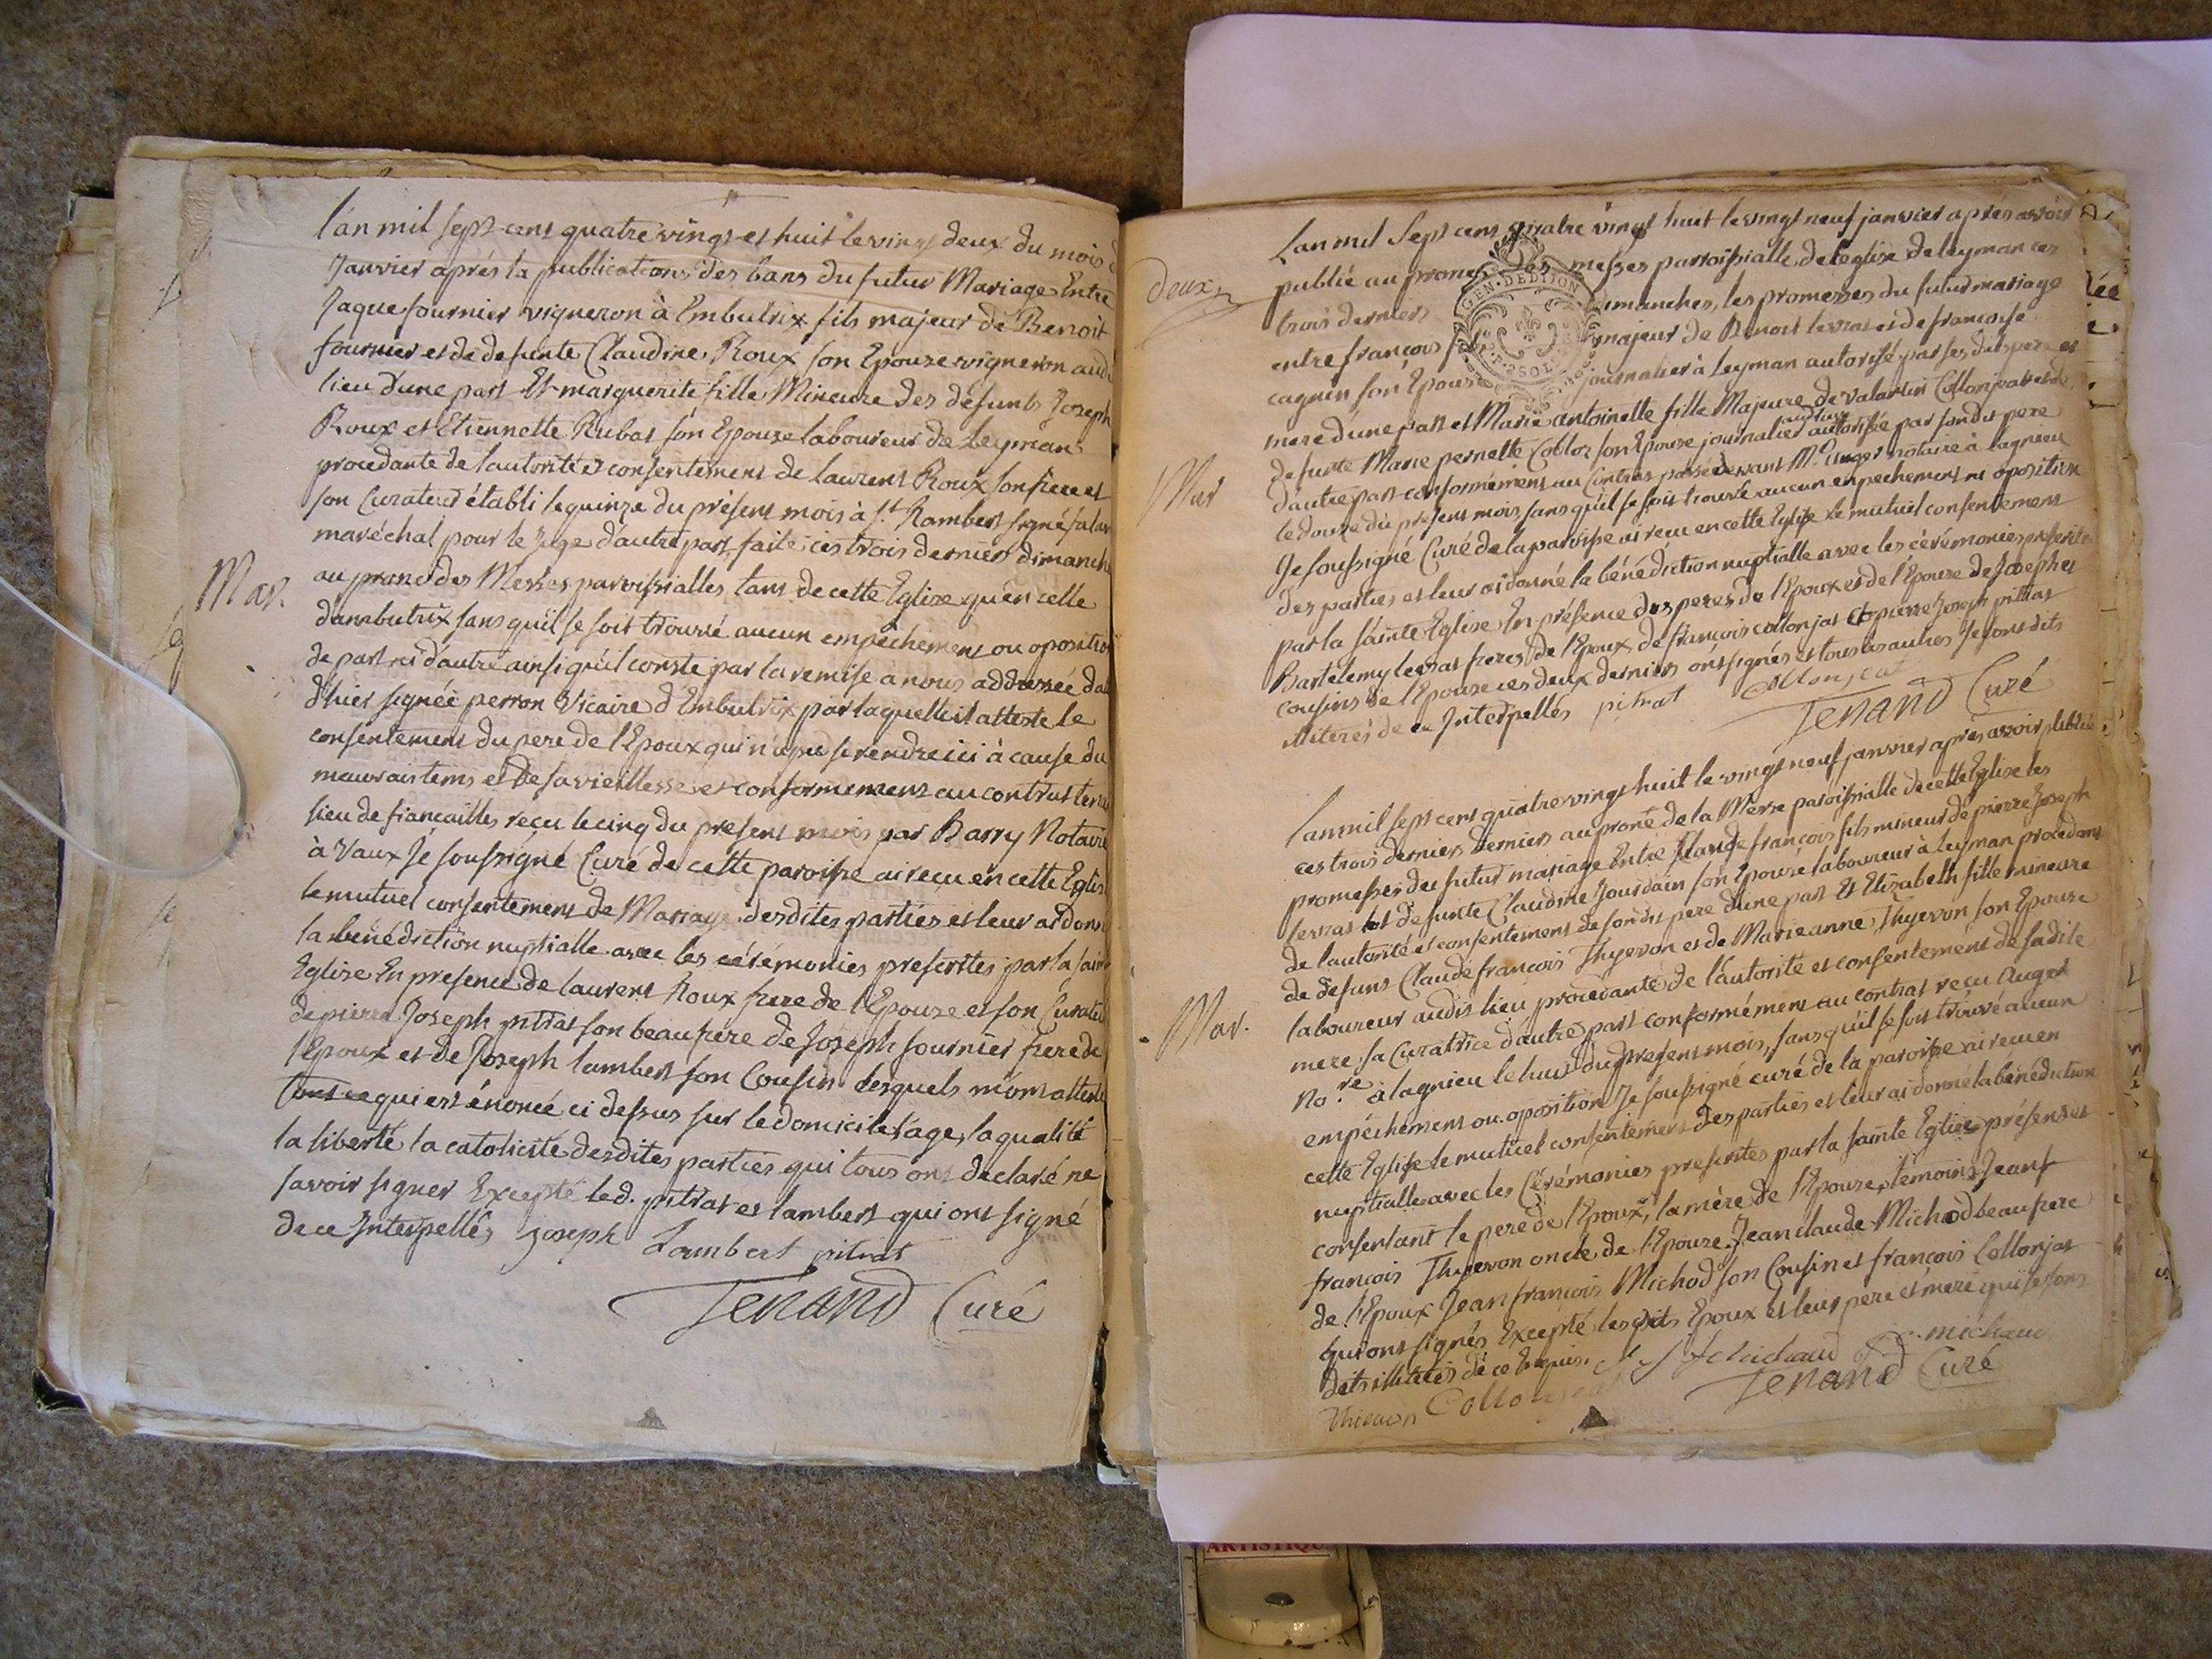 l'an mil sept cent quatre vingt et huit le vingt deux du mois
Janvier aprés la publications des bans du futur Mariage Entre
Jaque fournier vigneron à Embutrix fils majeur de Benoit
fournier et de defunte Claudine Roux son Epouze vigneron aud
lieu d'une part Et marguerite fille Mineure des défunts Joseph
Roux et Etiennette Rubat son Epouze laboureur de Leyman
procedante de l'autorité et consentement de laurent Roux son frere et
son Curateur établi le quinze du présent mois à St Rambert signé
maréchal pour le Juge d'autre part, faite ces trois derniers dimanch
au prone des Messes paroissialles tant de cette Eglize qu'en celle
d'ambutrix sans qu'il se soit trouvé aucun empêchement ou opositio
de part ni d'autre ainsi qu'il conste par la remise à nous addressée da
d'hier signée perron Vicaire d'Embutrix par laquelle il atteste le
consentement du pere de l'Epoux qui n'a pu se rendre ici à cause du
mauvais tems et de sa vieillesse et conformement au contrat
lieu de fiancailles reçu le cinq du present mois par Barry Notaire
à Vaux Je soussigné Curé de cette paroisse ai reçu en cette Eglise
le mutuel consentement de Mariage desdites parties et leur ai donn
la bénédiction nuptialle avec les cérémonies prescrites par la sain
Eglise En presence de laurent Roux frere de l'Epouze et son Curateu
de pierre Joseph pitrat son beaufrere de Joseph fournier frere de
l'Epoux et de Joseph lambert son Cousin lesquels m'ont attesté
tout ce qui est énoncé ci dessus sur le domicile l'age, la qualité
la liberté la catolicité desdites parties qui tous ont declaré ne
savoir signer Excepté led. pitrat et lambert qui ont signé
de ce Interpellés Joseph Lambert pitrat
Tenand Curé
Mar.
Lan mil Sept cent quatre vingt huit le vingt neuf janvier aprés avoir
deux
publié au prone des messes parroissialle de l'eglise de leyman ces
trois derniers dimanches, les promesses du futur mariage
entre françois fils majeur de Benoit levrat et de francoise
cagnin son Epouse journalier à Leyman autorisé par ses dits pere et
mere d'une part et Marie antoinette fille Majeure de Valantin Collonjeat et de
defunte Marie pernette son Epouze journalier autorisée par son dit pere
Mar
d'autre part conformément au Contrat passé devant Me Auger notaire à lagnieu
le douze du present mois, sans qu'il se soit trouvé aucun enpechement ni oposition
Je soussigné Curé de la paroisse ai recu en cette Eglise le mutuel consentement
des parties et leur ai donné la bénédiction nuptialle avec les cérémonies prescrites
par la sainte Eglise En présence des peres de l'Epoux et de l'Epouze de Joseph et
Bartelemy levrat freres de l'Epoux de francois collonjat et pierre Joseph pitrat
cousins de l'Epouze ces deux derniers ont signés et tous les autres se sont dits
illiterés de ce Interpellés pitrat Collonjat
Tenand Curé
lan mil sept cent quatre vingt huit le vingt neuf janvier aprés avoir publié
ces trois derniers derniers au prone de la Messe paroissialle de cette Eglise les
promesses du futur mariage Entre Claude françois fils mineur de pierre Joseph
levrat et defunte Claudine Jourdain son Epouze laboureur à Leyman procedant
de l'autorité et consentement de son dit pere d'une part Et Elizabeth fille mineure
de defunt Claude francois Thyevon et de Marieanne Thyevon son Epouze
laboureur audit lieu procedante de l'autorité et consentement de sa dite
Mar.
mere, sa Curatrice d'autre part conformément au contrat recu Auger
no.re à lagnieu le huit du present mois, sans qu'il se soit trouvé aucun
empéchement ou oposition Je soussigné curé de la paroisse ai recu en
cette Eglise le mutuel consentement des parties et leur ai donné la bénédiction
nuptialle avec les Cérémonies prescrites par la sainte Eglise présent et
consentant le pere de l'Epoux, la mère de l'Epouze, témoins Jean
francois Thyevon oncle de l'Epouze, Jean claude Michod beaufrere
de l'Epoux Jean françois Michod son Cousin et françois Collonjat
qui ont signés Excepté lesdits Epoux et leur pere et mere qui se sont
dits illiterés de ce Requis. J f Michaud michaud
thievon Collonjeat Tenand Curé
GEN. DE DIJON
ARTISTIQU